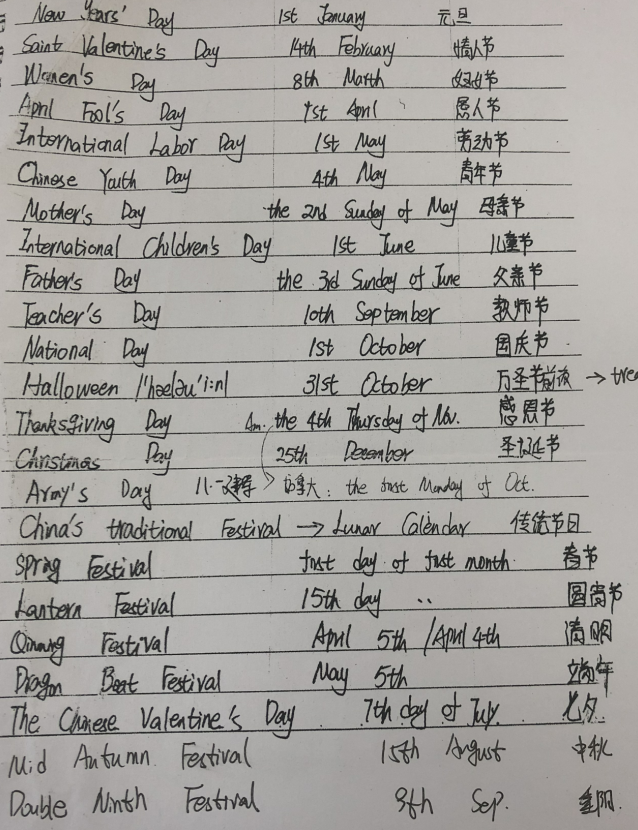 New Years' Day 1st January 元旦
Saint Valentine's Day 14th February 情人节
Women's Day 8th March 妇女节
April Fool's Day 1st April 愚人节
International Labor Day 1st May 劳动节
Chinese Youth Day 4th May 青年节
Mother's Day the 2nd Sunday of May 母亲节
International Children's Day 1st June 儿童节
Father's Day the 3rd Sunday of June 父亲节
Teacher's Day 10th September 教师节
National Day 1st October 国庆节
Halloween /'hæləu'i:n/ 31st October 万圣节前夜 → trea
Thanksgiving Day Am. the 4th Thursday of Nov. 感恩节
Christmas Day 25th December 圣诞节
Army's Day 八.一建军 加拿大: the first Monday of Oct.
China's traditional Festival → Lunar Calendar 传统节日
Spring Festival first day of first month 春节
Lantern Festival 15th day .. 圆宵节
Qinming Festival April 5th / April 4th 清明
Dragon Boat Festival May 5th 端午
The Chinese Valentine's Day 7th day of July. 七夕
Mid Autumn Festival 15th August 中秋
Double Ninth Festival 9th Sep. 重阳